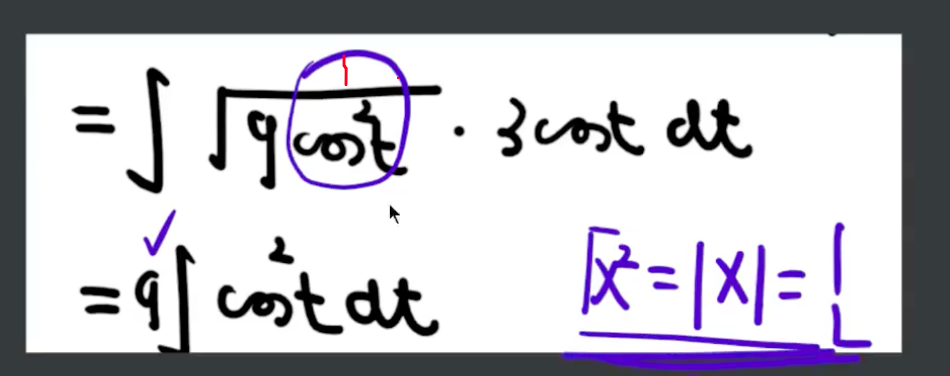 = ∫ √(9 cos²t) · 3 cost dt
= 9 ∫ cos²t dt
√x² = |x| = {